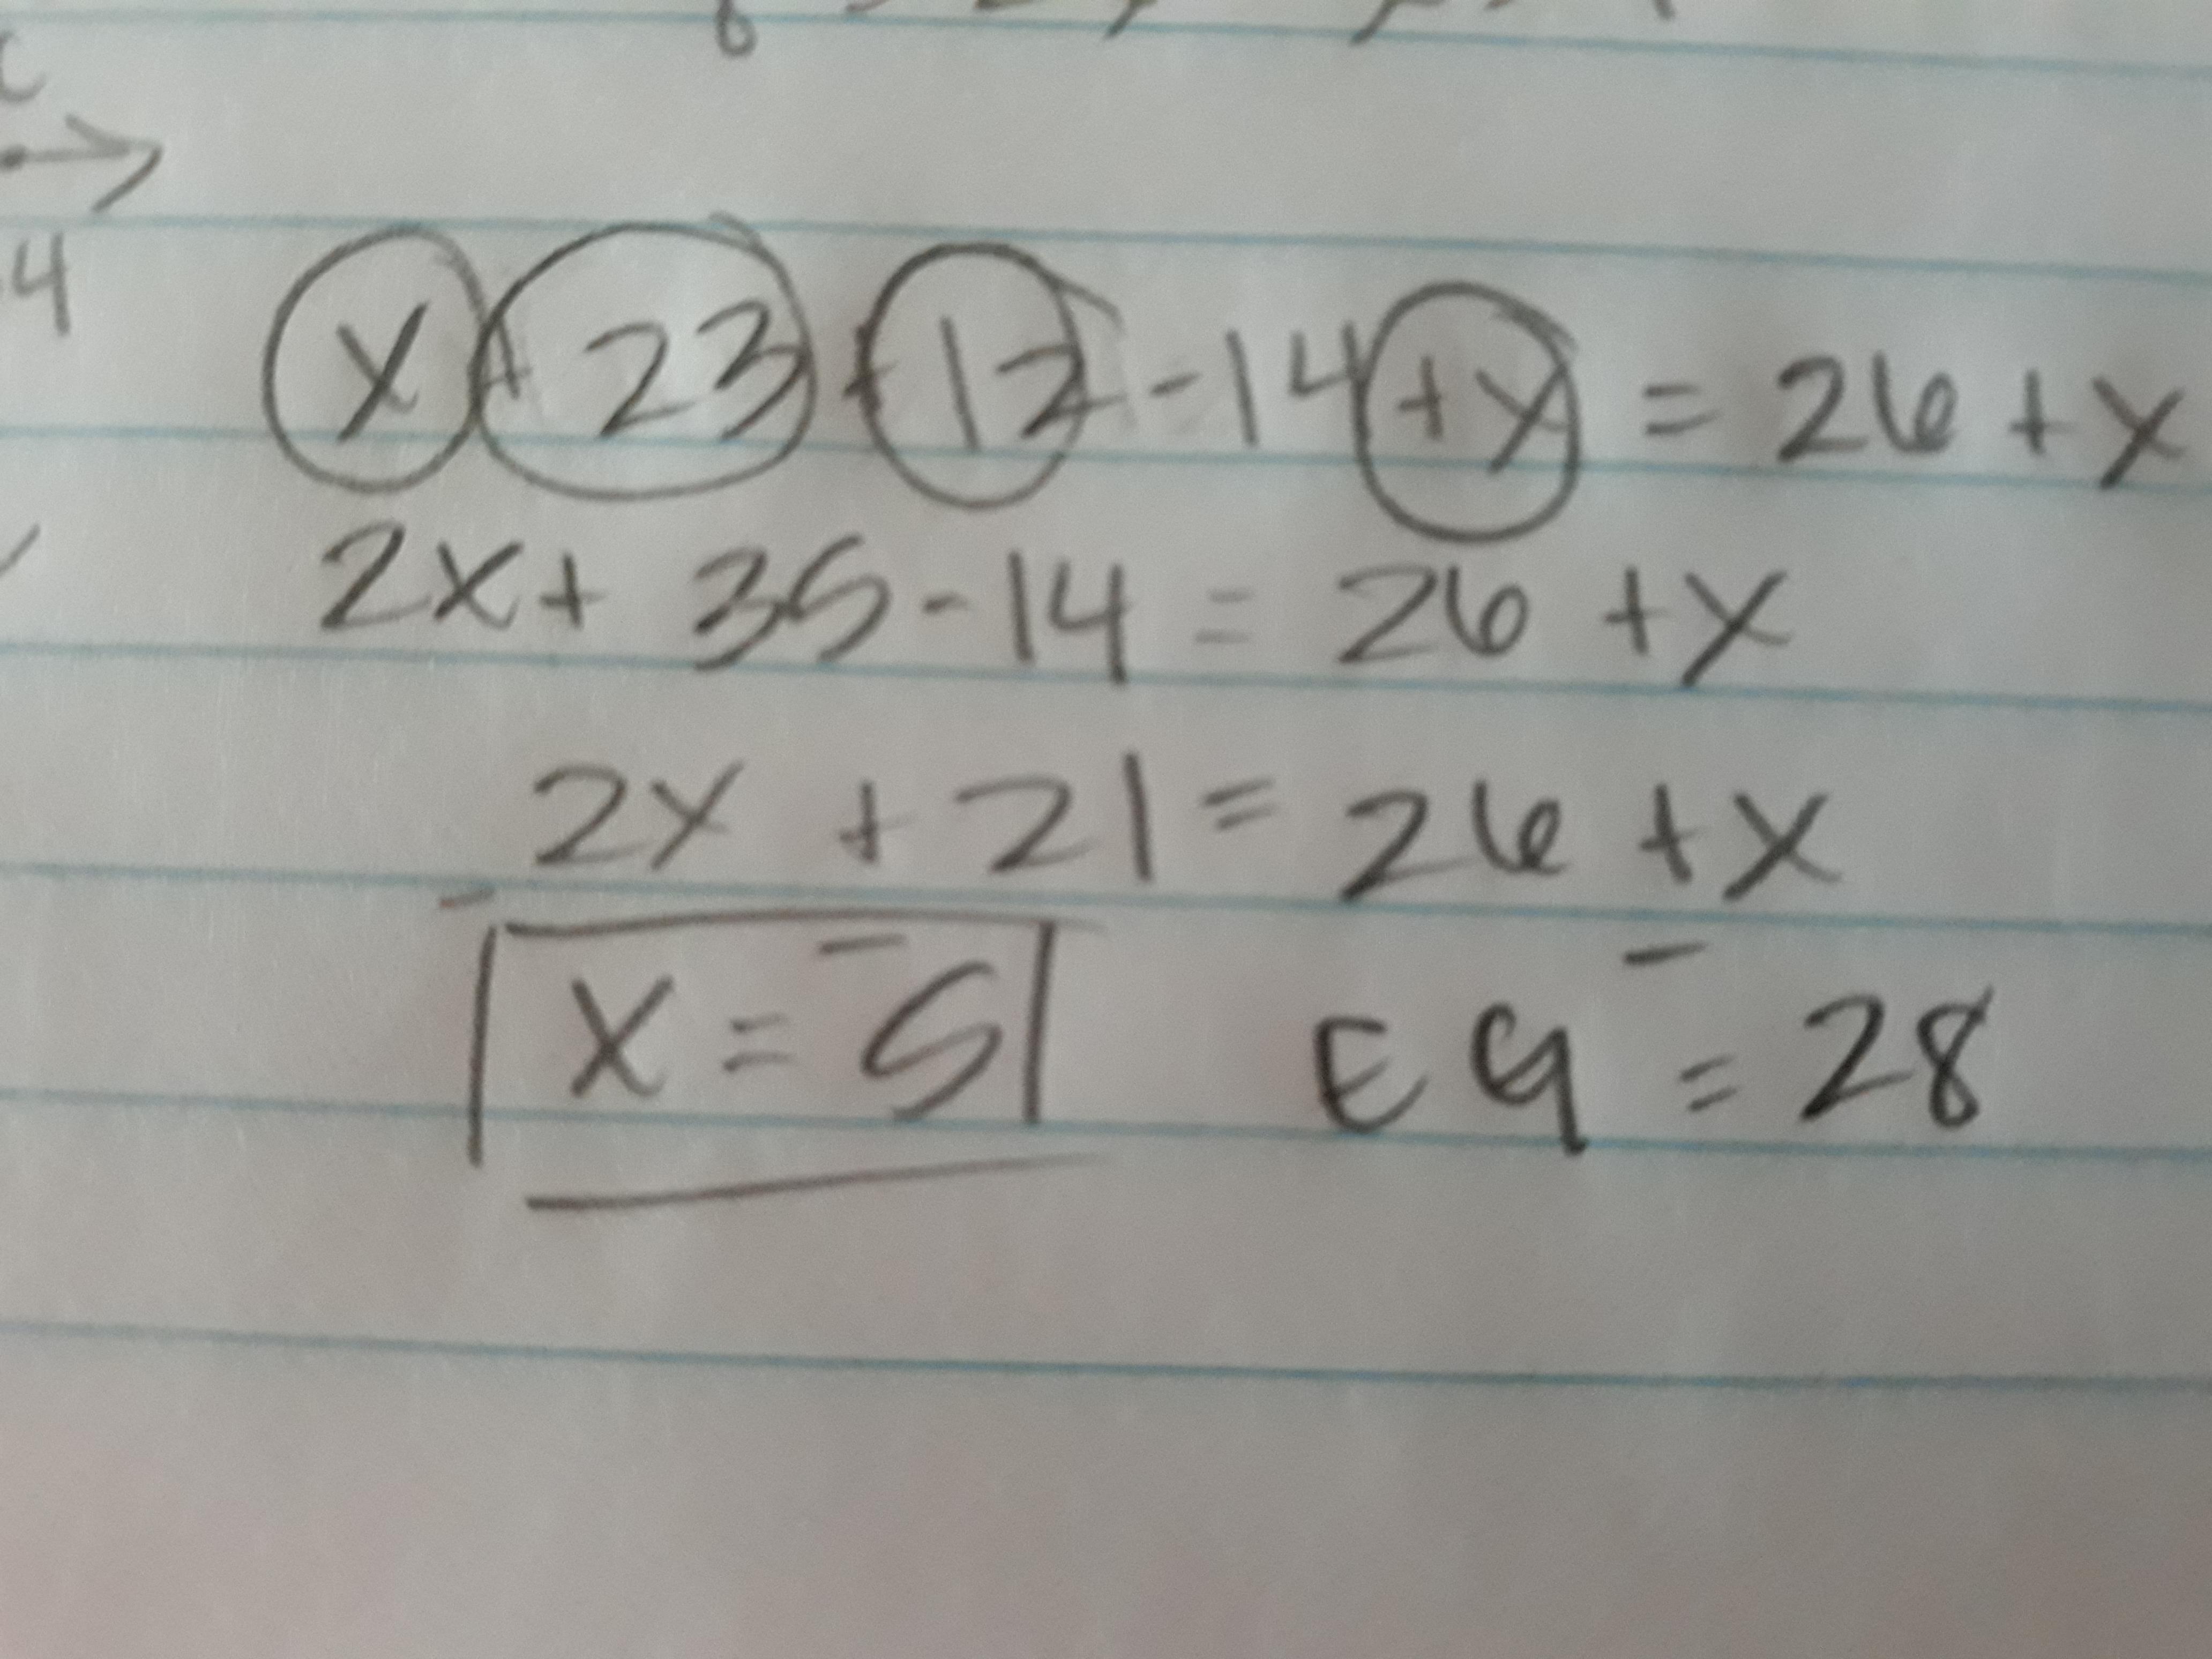 4
x + 23 + 12 - 14 + x = 26 + x
2x + 35 - 14 = 26 + x
2x + 21 = 26 + x
x = 5 EG = 28